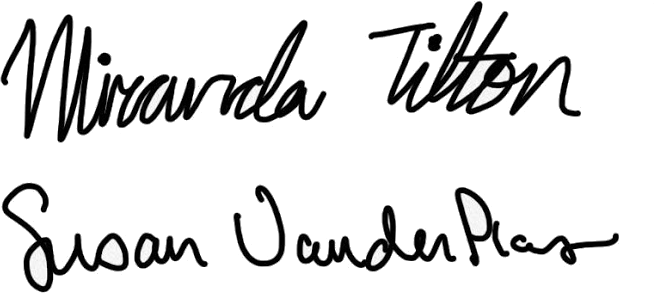 Miranda Tilton
Susan VanderPlas